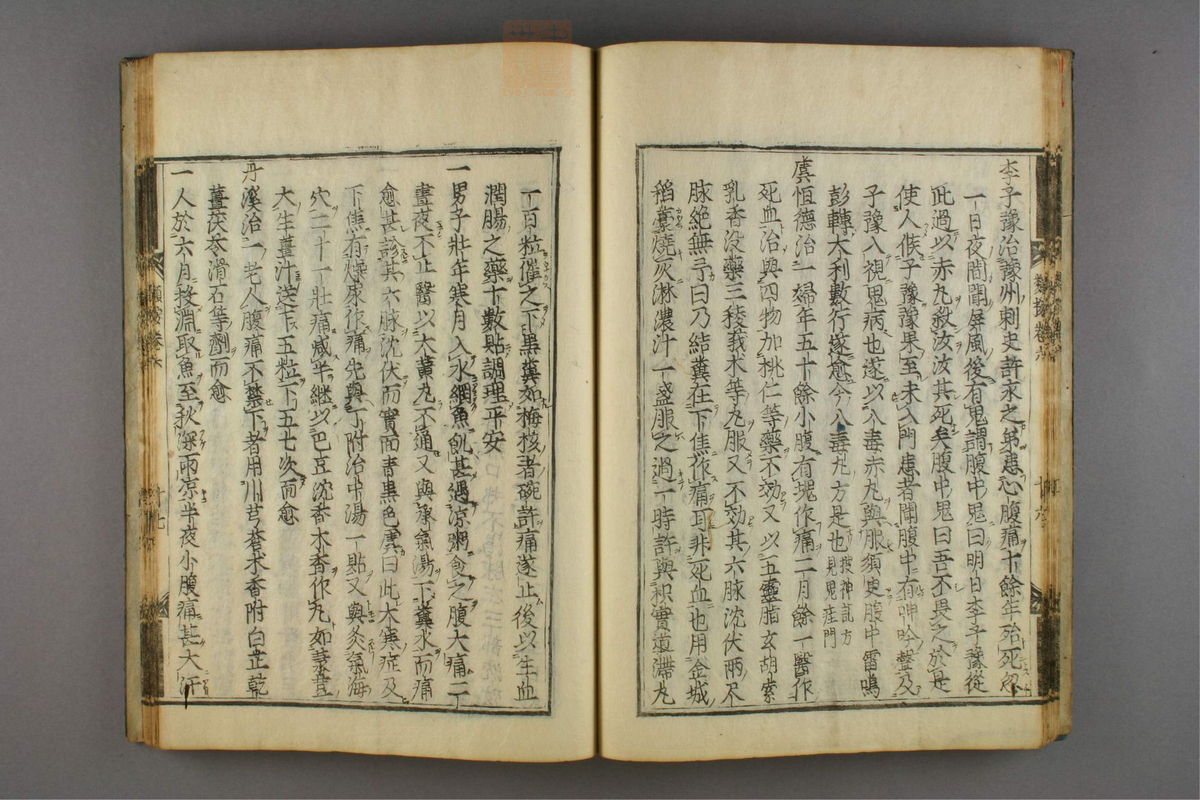 李子豫治豫州刺史許永之弟患心腹痛十餘年殆死忽
一日夜間聞屏風後有鬼謂腹中鬼曰明日李子豫從
此過以赤丸殺汝汝其死矣腹中鬼曰吾不畏之於是
使人候子豫豫果至未入門患者聞腹中有呻吟聲及
子豫入視鬼病也遂以八毒赤丸與服須臾腹中雷鳴
彭轉大利數行遂愈今八毒丸方是也
見鬼疰門
虞恒德治一婦年五十餘小腹有塊作痛二月餘一醫作
死血治與四物加桃仁等藥不効又以五靈脂玄胡索
乳香没藥三稜莪朮等丸服又不効其六脉沈伏兩尺
脉絶無予曰乃結糞在下焦作痛耳非死血也用金城
稻藁燒灰淋濃汁一盞服之過一時許與枳實導滯丸
一百粒催之下黒糞如梅核者碗許痛遂止後以生血
潤腸之藥十數貼調理平安
一男子壯年寒月入水網魚飢甚過凉粥食之腹大痛二
晝夜不止醫以大黄丸不通又與承氣湯下糞水而痛
愈甚診其六脉沈伏而實面青黒色虞曰此大寒症及
下焦有燥屎作痛先與丁附治中湯一貼又與灸氣海
穴二十一壯痛減半繼以巴豆沈香木香作丸如菉豆
大生薑汁送下五粒下五七次而愈
丹溪治一老人腹痛不禁下者用川芎蒼朮香附白芷乾
薑茯苓滑石等劑而愈
一人於六月投淵取魚至秋深雨凉半夜小腹痛甚大汗